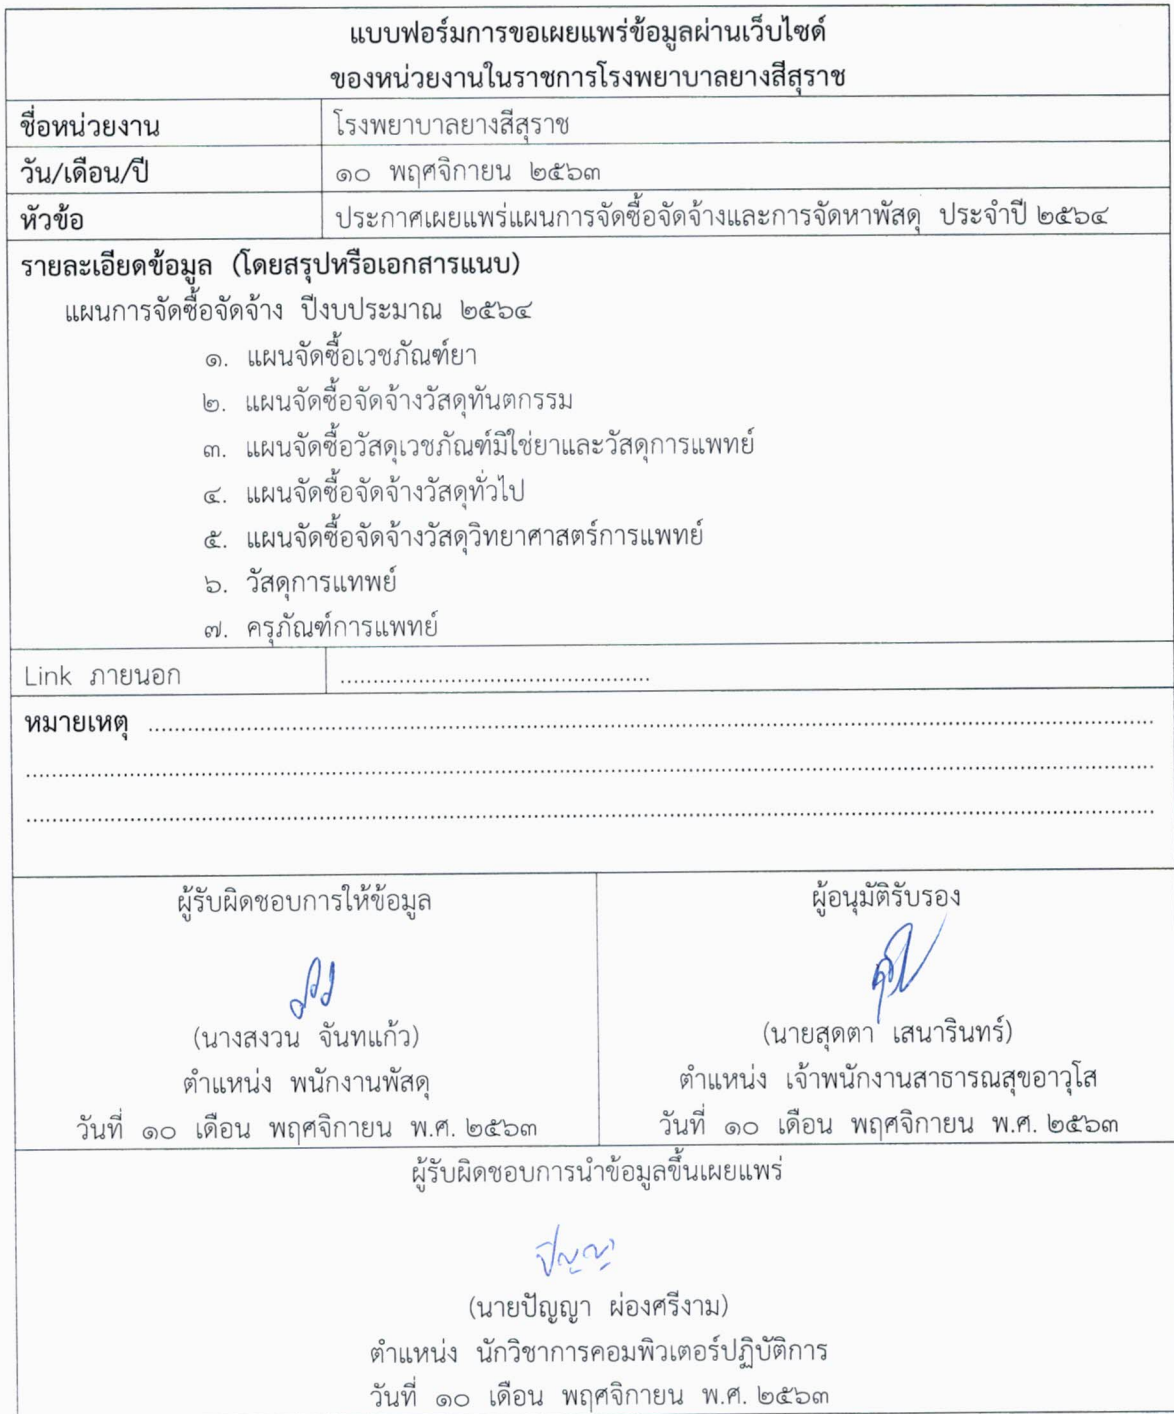 แบบฟอร์มการขอเผยแพร่ข้อมูลผ่านเว็บไซด์
ของหน่วยงานในราชการโรงพยาบาลยางสีสุราช
ชื่อหน่วยงาน โรงพยาบาลยางสีสุราช
วัน/เดือน/ปี ๑๐ พฤศจิกายน ๒๕๖๓
หัวข้อ ประกาศเผยแพร่แผนการจัดซื้อจัดจ้างและการจัดหาพัสดุ ประจำปี ๒๕๖๔
รายละเอียดข้อมูล (โดยสรุปหรือเอกสารแนบ)
แผนการจัดซื้อจัดจ้าง ปีงบประมาณ ๒๕๖๔
๑. แผนจัดซื้อเวชภัณฑ์ยา
๒. แผนจัดซื้อจัดจ้างวัสดุทันตกรรม
๓. แผนจัดซื้อวัสดุเวชภัณฑ์มิใช่ยาและวัสดุการแพทย์
๔. แผนจัดซื้อจัดจ้างวัสดุทั่วไป
๕. แผนจัดซื้อจัดจ้างวัสดุวิทยาศาสตร์การแพทย์
๖. วัสดุการแทพย์
๗. ครุภัณฑ์การแพทย์
Link ภายนอก ................................................
หมายเหตุ ................................................
................................................
................................................
ผู้รับผิดชอบการให้ข้อมูล
(นางสงวน จันทแก้ว)
ตำแหน่ง พนักงานพัสดุ
วันที่ ๑๐ เดือน พฤศจิกายน พ.ศ. ๒๕๖๓
ผู้อนุมัติรับรอง
(นายสุดตา เสนารินทร์)
ตำแหน่ง เจ้าพนักงานสาธารณสุขอาวุโส
วันที่ ๑๐ เดือน พฤศจิกายน พ.ศ. ๒๕๖๓
ผู้รับผิดชอบการนำข้อมูลขึ้นเผยแพร่
ปัญญา
(นายปัญญา ผ่องศรีงาม)
ตำแหน่ง นักวิชาการคอมพิวเตอร์ปฏิบัติการ
วันที่ ๑๐ เดือน พฤศจิกายน พ.ศ. ๒๕๖๓